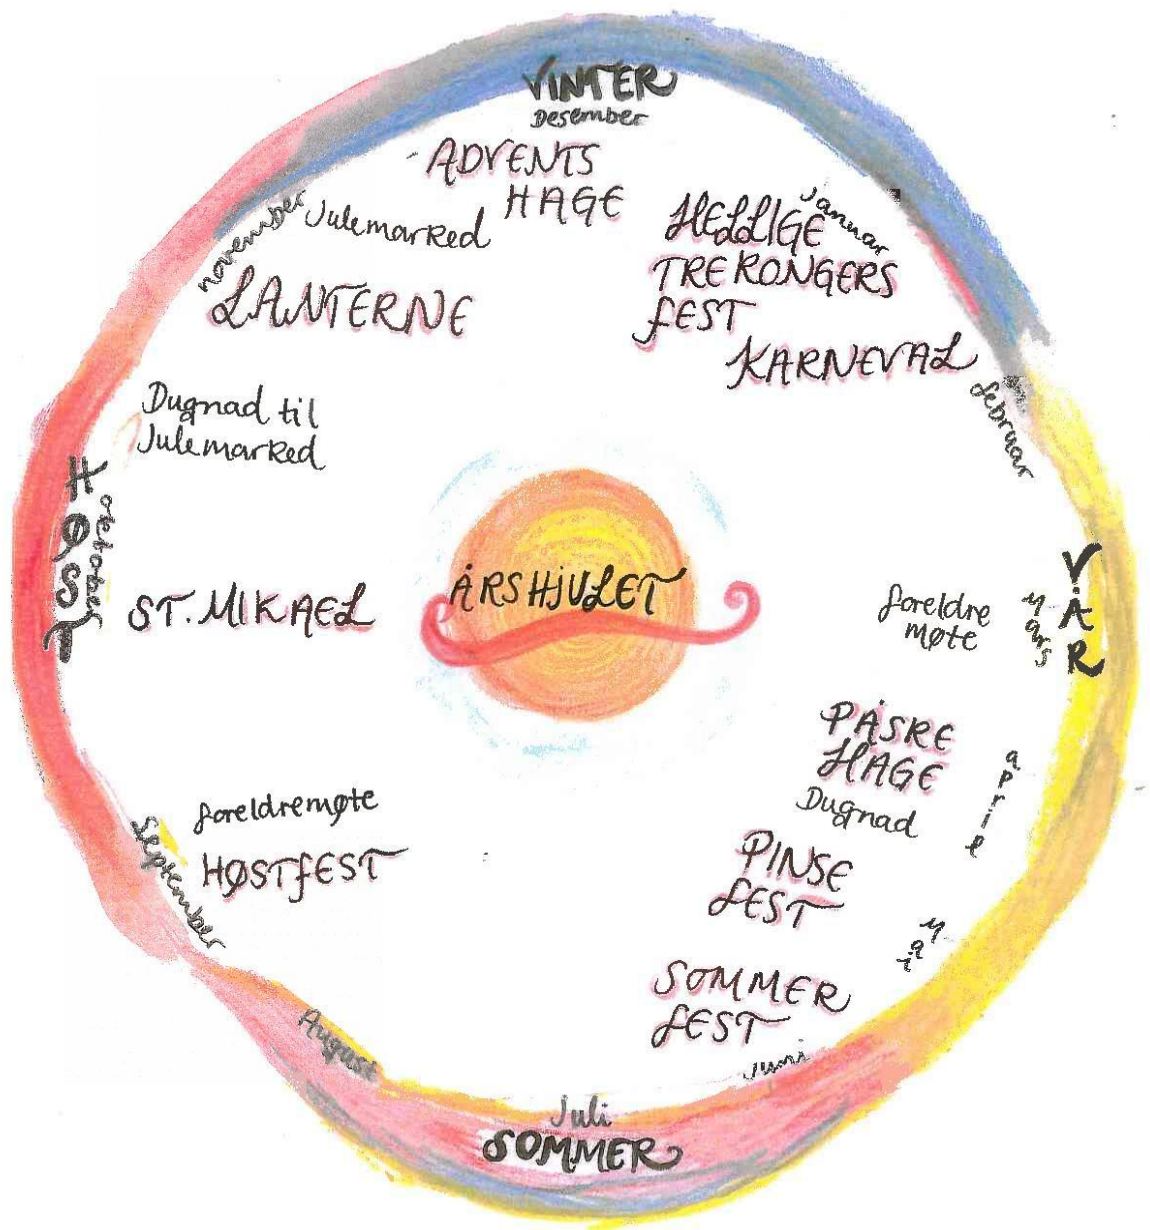 VINTER
Desember
ADVENTS
HAGE
Januar
HELLIGE
TREKONGERS
FEST
KARNEVAL
februar
VÅR
Mars
foreldre
møte
april
PÅSKE
HAGE
Dugnad
PINSE
FEST
Mai
SOMMER
FEST
Juni
Juli
SOMMER
August
September
foreldremøte
HØSTFEST
HØST
oktober
ST. MIKAEL
Dugnad til
Julemarked
november
Julemarked
LANTERNE
ÅRSHJULET